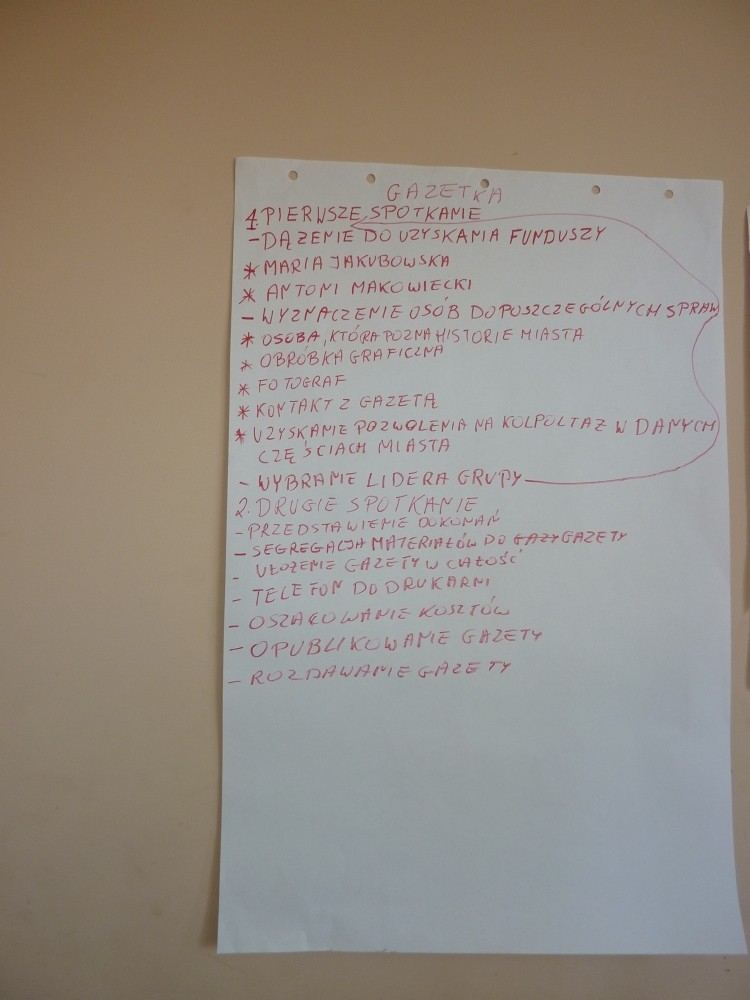 GAZETKA
1. PIERWSZE SPOTKANIE
- DĄŻENIE DO UZYSKANIA FUNDUSZY
* MARIA JAKUBOWSKA
* ANTONI MAKOWIECKI
- WYZNACZENIE OSÓB DO POSZCZEGÓLNYCH SPRAW
* OSOBA, KTÓRA POZNA HISTORIE MIASTA
* OBRÓBKA GRAFICZNA
* FOTOGRAF
* KONTAKT Z GAZETĄ
* UZYSKANIE POZWOLENIA NA KOLPOLTAŻ W DANYCH
CZĘŚCIACH MIASTA
- WYBRANIE LIDERA GRUPY
2. DRUGIE SPOTKANIE
- PRZEDSTAWIENIE DOKONAŃ
- SEGREGACJA MATERIAŁÓW DO GAZY GAZETY
- UŁOŻENIE GAZETY W CAŁOŚĆ
- TELEFON DO DRUKARNI
- OSZACOWANIE KOSZTÓW
- OPUBLIKOWANIE GAZETY
- ROZDAWANIE GAZETY